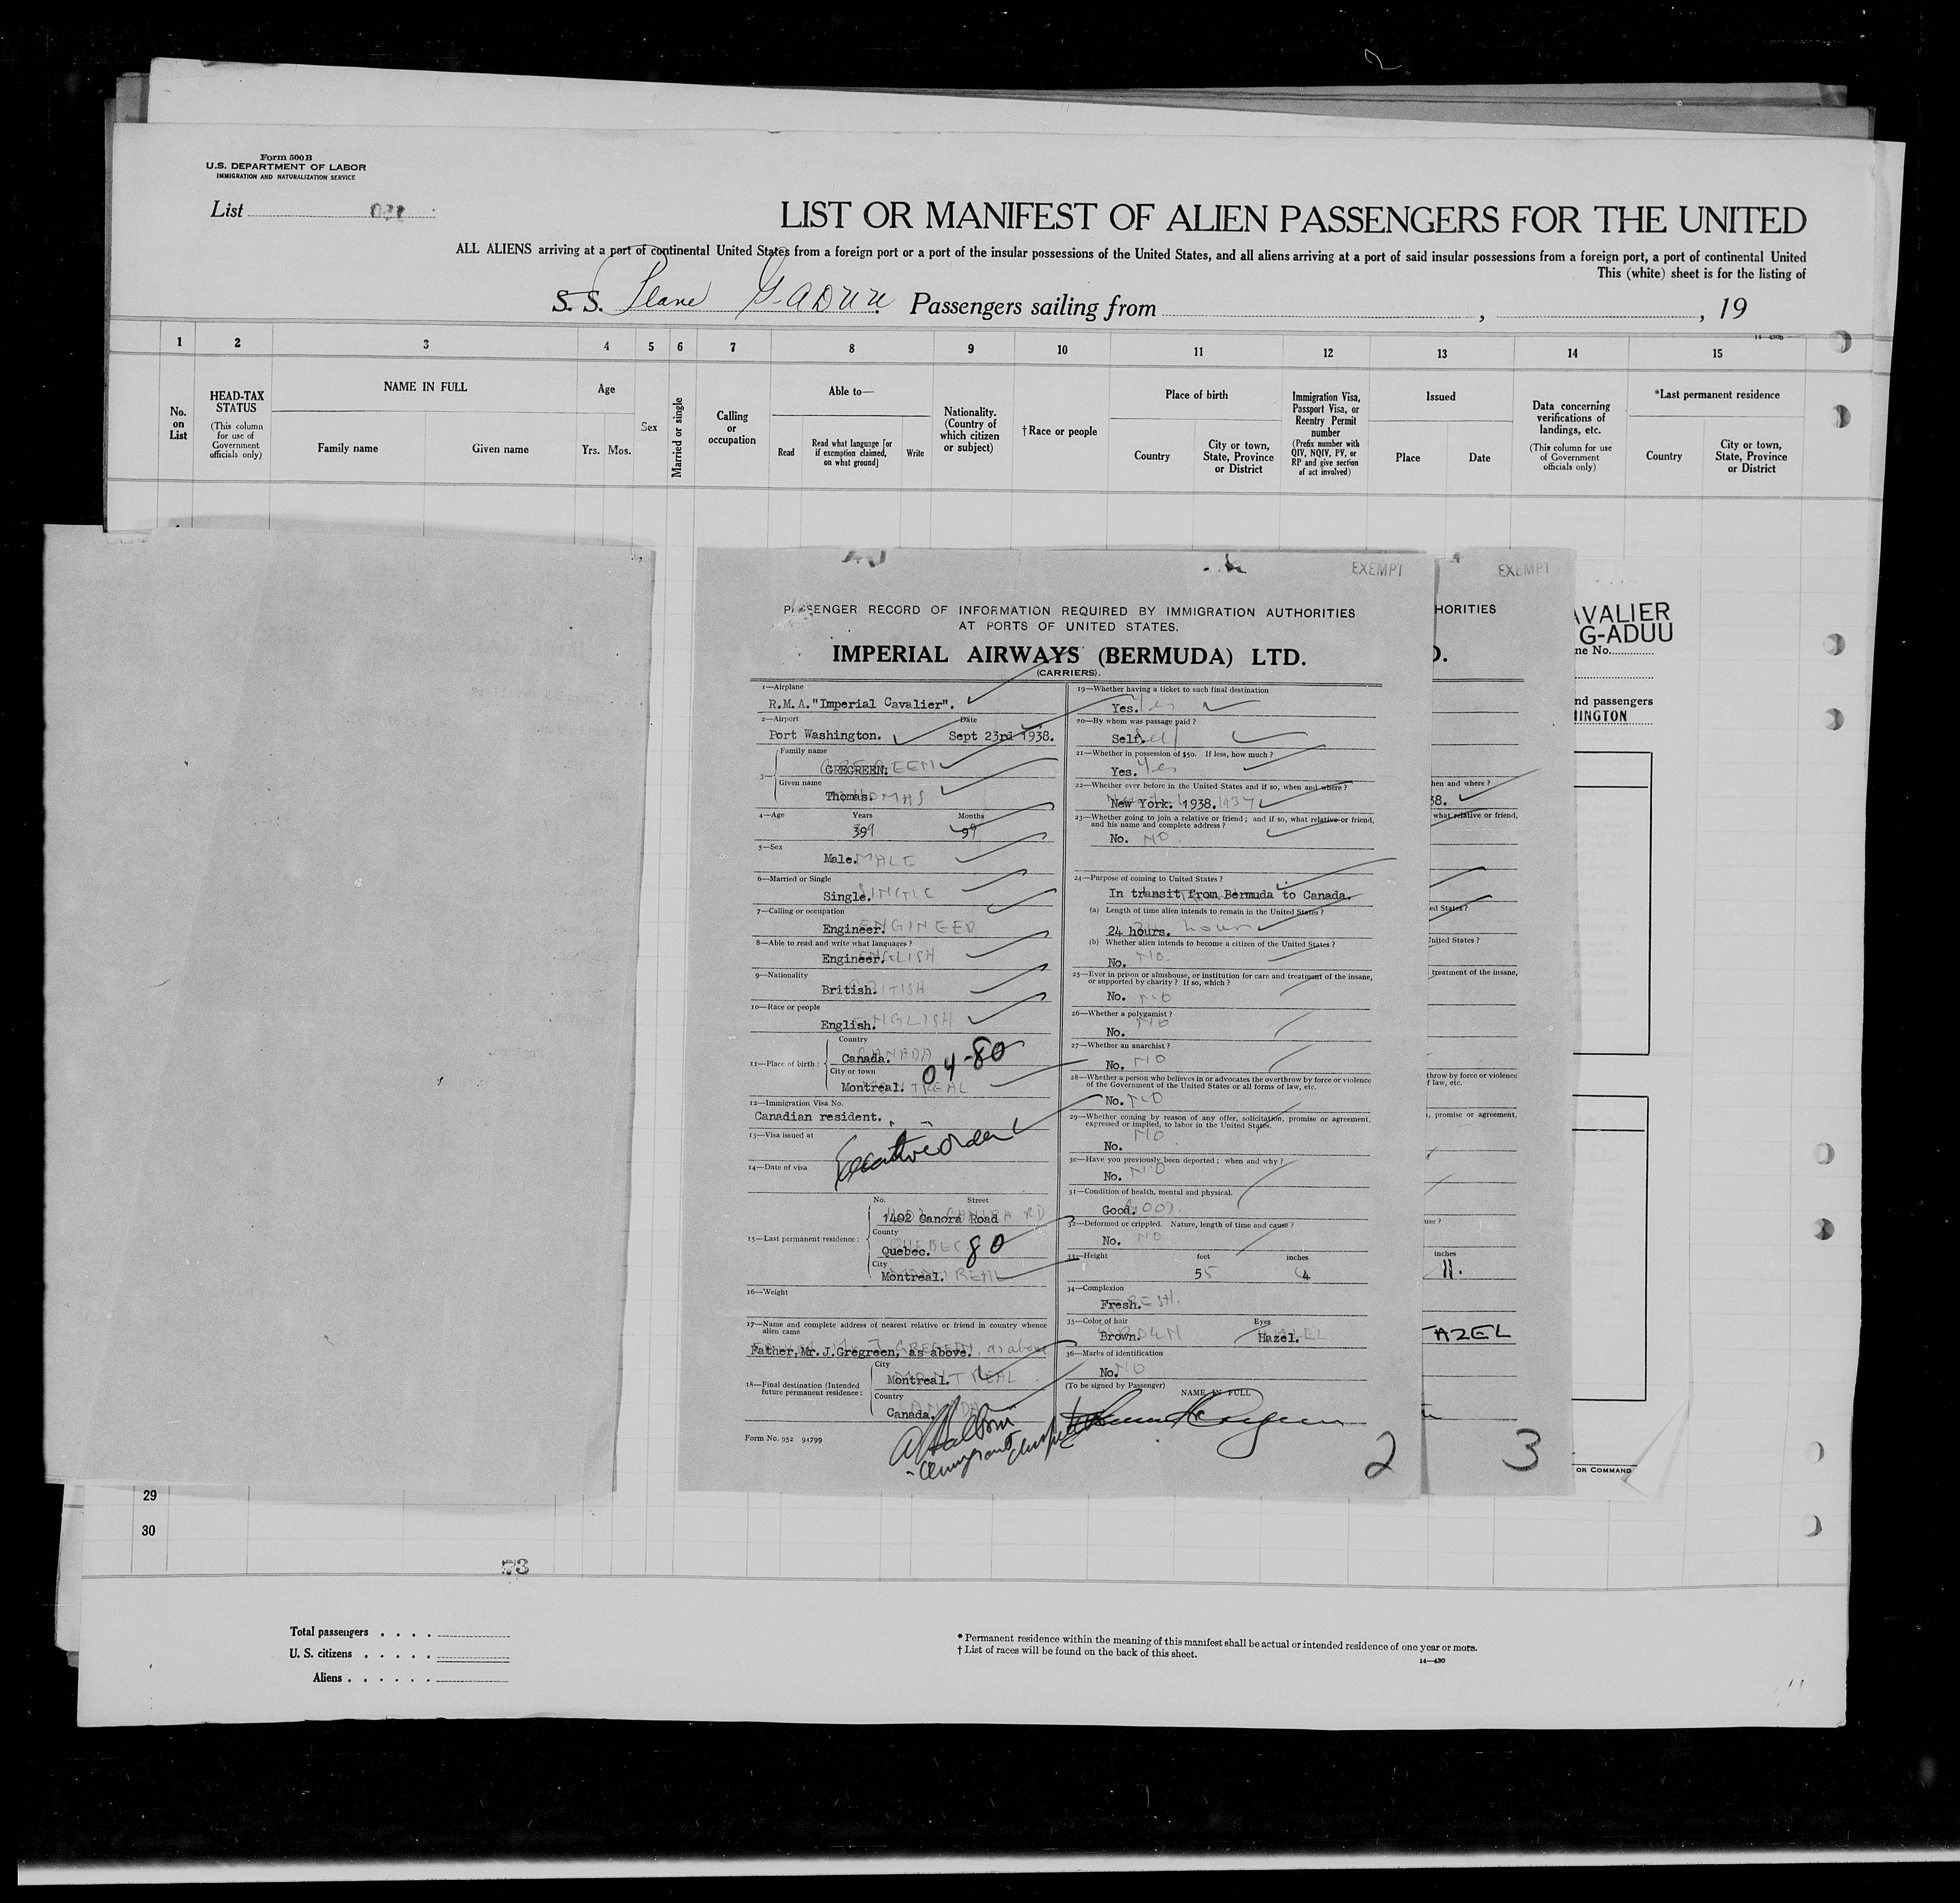 2
Form 500B
U.S. DEPARTMENT OF LABOR
IMMIGRATION AND NATURALIZATION SERVICE
List
LIST OR MANIFEST OF ALIEN PASSENGERS FOR THE UNITED
ALL ALIENS arriving at a port of continental United States from a foreign port or a port of the insular possessions of the United States, and all aliens arriving at a port of said insular possessions from a foreign port, a port of continental United
This (white) sheet is for the listing of
S. S. Plane G-ADUU. Passengers sailing from , , 19
14—430b
1 2 3 4 5 6 7 8 9 10 11 12 13 14 15
No. on List
HEAD-TAX STATUS
(This column for use of Government officials only)
NAME IN FULL
Family name Given name
Age
Yrs. Mos.
Sex
Married or single
Calling or occupation
Able to—
Read Read what language [or if exemption claimed, on what ground] Write
Nationality. (Country of which citizen or subject)
†Race or people
Place of birth
Country City or town, State, Province or District
Immigration Visa, Passport Visa, or Reentry Permit number
(Prefix number with QIV, NQIV, PV, or RP and give section of act involved)
Issued
Place Date
Data concerning verifications of landings, etc.
(This column for use of Government officials only)
*Last permanent residence
Country City or town, State, Province or District
EXEMPT
PASSENGER RECORD OF INFORMATION REQUIRED BY IMMIGRATION AUTHORITIES
AT PORTS OF UNITED STATES.
IMPERIAL AIRWAYS (BERMUDA) LTD.
(CARRIERS).
1—Airplane
R.M.A."Imperial Cavalier".
2—Airport Date
Port Washington. Sept 23rd 1938.
3— Family name
GREGREEN.
Given name
Thomas. THOMAS
4—Age Years Months
39 9
5—Sex
Male. MALE
6—Married or Single
Single. SINGLE
7—Calling or occupation
Engineer. ENGINEER
8—Able to read and write what languages ?
Engineer. ENGLISH
9—Nationality
British. BRITISH
10—Race or people
English. ENGLISH
11—Place of birth : Country
Canada. CANADA
04-80
City or town
Montreal. MONTREAL
12—Immigration Visa No.
Canadian resident.
13—Visa issued at
Executive Order
14—Date of visa
No. Street
1402 Canora Road
15—Last permanent residence : County
Quebec. QUEBEC 80
City
Montreal. MONTREAL
16—Weight
17—Name and complete address of nearest relative or friend in country whence
alien came
Father, Mr. J.Gregreen, as above. as above
18—Final destination (Intended future permanent residence : City
Montreal. MONTREAL
Country
Canada. CANADA
Form No. 952 94799
19—Whether having a ticket to such final destination
Yes. Yes
20—By whom was passage paid ?
Self. Self
21—Whether in possession of $50. If less, how much ?
Yes. Yes
22—Whether ever before in the United States and if so, when and where ?
New York. 1938. 1937
23—Whether going to join a relative or friend ; and if so, what relative or friend,
and his name and complete address ?
No. NO.
24—Purpose of coming to United States ?
In transit from Bermuda to Canada.
(a) Length of time alien intends to remain in the United States ?
24 hours. hours
(b) Whether alien intends to become a citizen of the United States ?
No. NO.
25—Ever in prison or almshouse, or institution for care and treatment of the insane,
or supported by charity ? If so, which ?
No. NO
26—Whether a polygamist ?
No. NO
27—Whether an anarchist ?
No. NO
28—Whether a person who believes in or advocates the overthrow by force or violence
of the Government of the United States or all forms of law, etc.
No. NO
29—Whether coming by reason of any offer, solicitation, promise or agreement,
expressed or implied, to labor in the United States.
No. NO
30—Have you previously been deported ; when and why ?
No. NO
31—Condition of health, mental and physical.
Good. GOOD.
32—Deformed or crippled. Nature, length of time and cause ?
No. NO
33—Height feet inches
5 4
34—Complexion
Fresh. FRESH.
35—Color of hair Eyes
Brown. BROWN Hazel. HAZEL
36—Marks of identification
No. NO
(To be signed by Passenger) NAME IN FULL
2
EXEMPT
HORITIES
D.
hen and where ?
38.
what relative or friend,
ed States ?
United States ?
treatment of the insane,
throw by force or violence
f law, etc.
, promise or agreement,
use ?
inches
11.
HAZEL
3
AVALIER
G-ADUU
ne No.
nd passengers
HINGTON
OR COMMAND
29
30
73
Total passengers
U. S. citizens
Aliens
* Permanent residence within the meaning of this manifest shall be actual or intended residence of one year or more.
† List of races will be found on the back of this sheet.
14—430